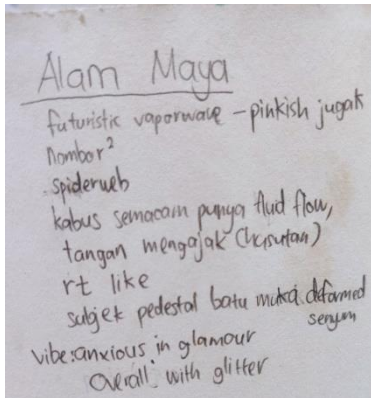 Alam Maya
futuristic vaporwave - pinkish jugak
nombor²
spiderweb
kabus semacam punya fluid flow,
tangan mengajak (hasutan)
rt like
subjek pedestal batu muka deformed
senyum
vibe: anxious in glamour
overall: with glitter